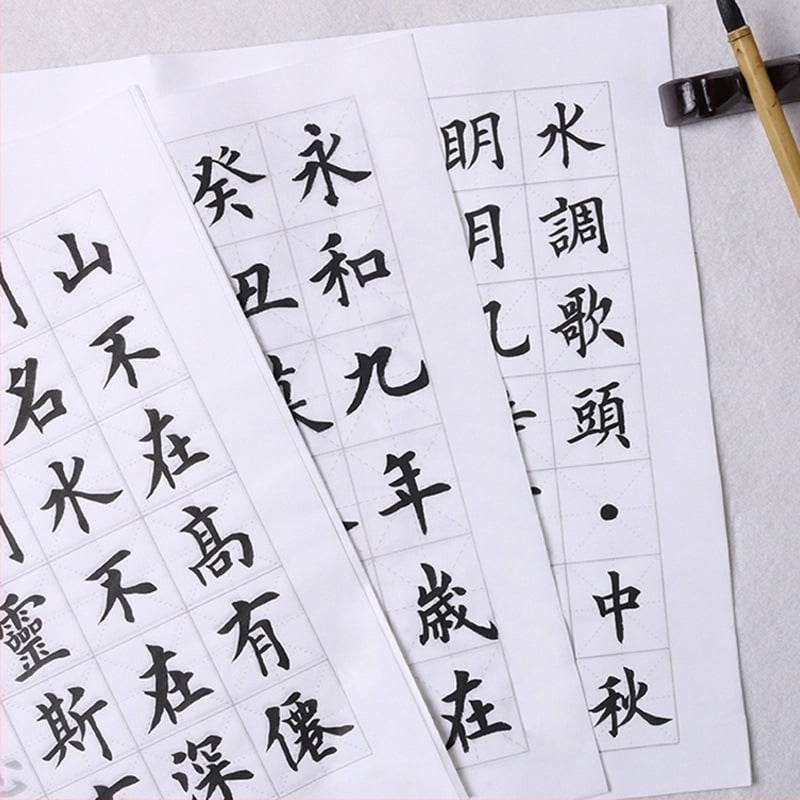 水調歌頭•中秋
明月几
永和九年歲在
癸丑
山不在高有僊
名水不在深
靈斯